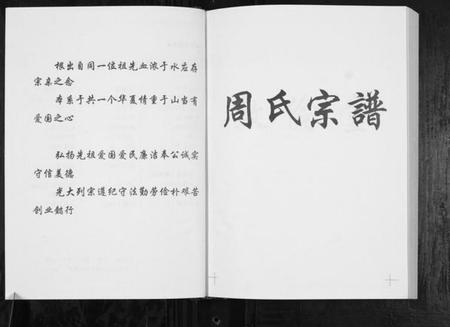 根出自同一位祖先血浓于水应存
宗亲之念
本系于共一个华夏情重于山当有
爱国之心
弘扬先祖爱国爱民廉洁奉公诚实
守信美德
光大列宗遵纪守法勤劳俭朴艰苦
创业懿行
周氏宗譜